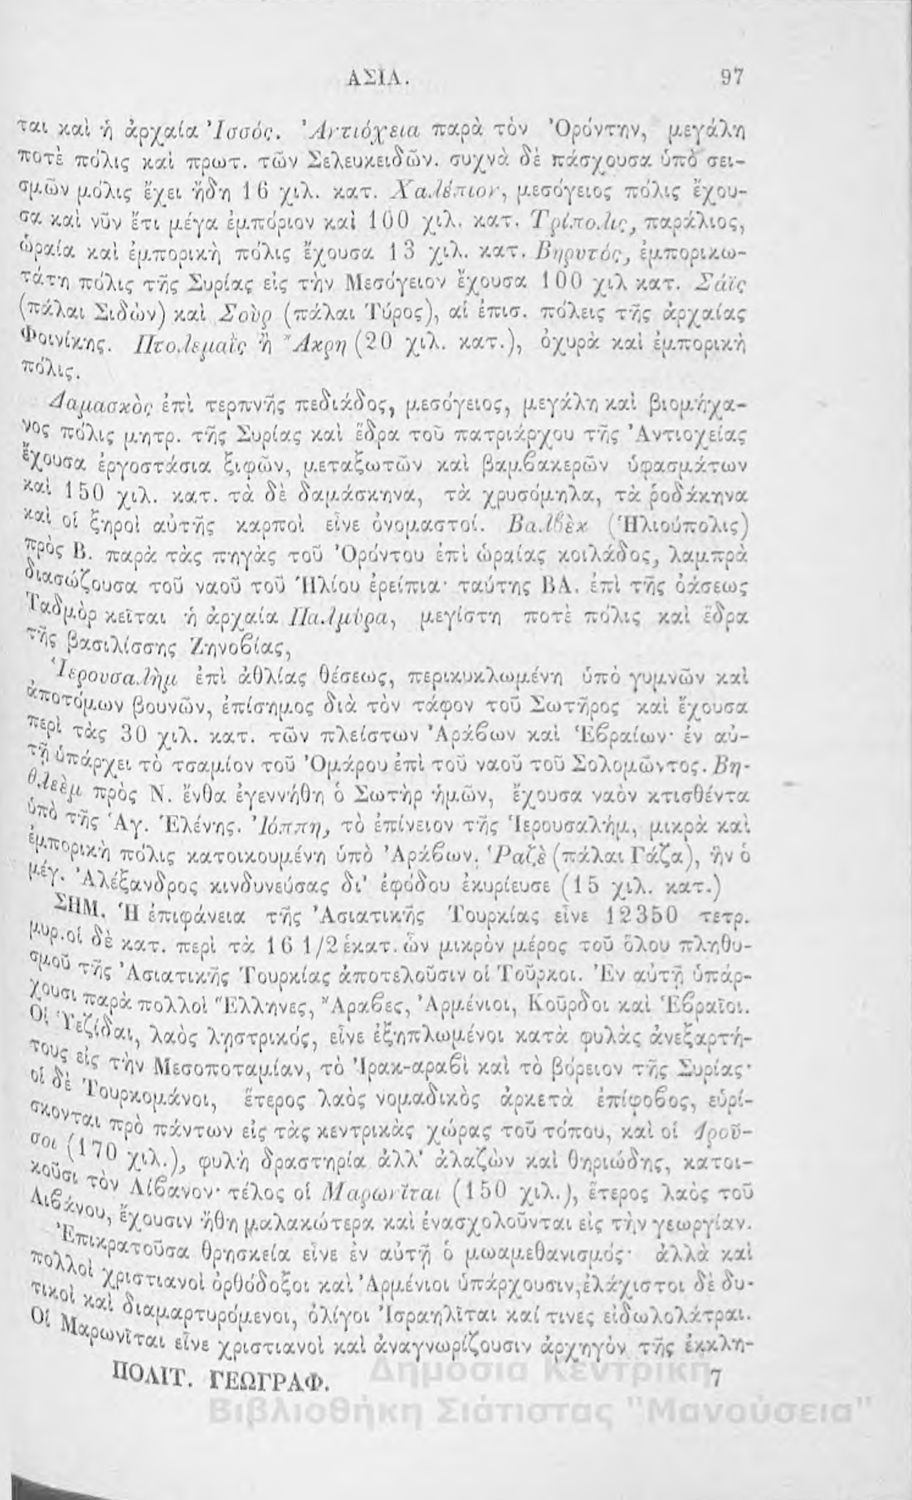 ΑΣΙΑ. 97
ται καὶ ἡ ἀρχαία Ἰσσός. Ἀντιόχεια παρὰ τὸν Ὀρόντην, μεγάλη
ποτὲ πόλις καὶ πρωτ. τῶν Σελευκειδῶν. συχνὰ δὲ πάσχουσα ὑπὸ σει-
σμῶν μόλις ἔχει ἤδη 16 χιλ. κατ. Χαλέπιον, μεσόγειος πόλις ἔχου-
σα καὶ νῦν ἔτι μέγα ἐμπόριον καὶ 100 χιλ. κατ. Τρίπολις, παράλιος,
ὡραία καὶ ἐμπορικὴ πόλις ἔχουσα 13 χιλ. κατ. Βηρυτός, ἐμπορικω-
τάτη πόλις τῆς Συρίας εἰς τὴν Μεσόγειον ἔχουσα 100 χιλ κατ. Σάϊς
(πάλαι Σιδών) καὶ Σοὺρ (πάλαι Τύρος), αἱ ἐπισ. πόλεις τῆς ἀρχαίας
Φοινίκης. Πτολεμαῒς ἢ Ἄκρη (20 χιλ. κατ.), ὀχυρὰ καὶ ἐμπορικὴ
πόλις.
Δαμασκὸς ἐπὶ τερπνῆς πεδιάδος, μεσόγειος, μεγάλη καὶ βιομήχα-
νος πόλις μητρ. τῆς Συρίας καὶ ἕδρα τοῦ πατριάρχου τῆς Ἀντιοχείας
ἔχουσα ἐργοστάσια ξιφῶν, μεταξωτῶν καὶ βαμβακερῶν ὑφασμάτων
καὶ 150 χιλ. κατ. τὰ δὲ δαμάσκηνα, τὰ χρυσόμηλα, τὰ ῥοδάκηνα
καὶ οἱ ξηροὶ αὐτῆς καρποὶ εἶνε ὀνομαστοί. Βαλβὲκ (Ἡλιούπολις)
πρὸς Β. παρὰ τὰς πηγὰς τοῦ Ὀρόντου ἐπὶ ὡραίας κοιλάδος, λαμπρὰ
διασώζουσα τοῦ ναοῦ τοῦ Ἡλίου ἐρείπια· ταύτης ΒΑ. ἐπὶ τῆς ὀάσεως
Ταδμὸρ κεῖται ἡ ἀρχαία Παλμύρα, μεγίστη ποτὲ πόλις καὶ ἕδρα
τῆς βασιλίσσης Ζηνοβίας,
Ἱερουσαλὴμ ἐπὶ ἀθλίας θέσεως, περικυκλωμένη ὑπὸ γυμνῶν καὶ
ἀποτόμων βουνῶν, ἐπίσημος διὰ τὸν τάφον τοῦ Σωτῆρος καὶ ἔχουσα
περὶ τὰς 30 χιλ. κατ. τῶν πλείστων Ἀράβων καὶ Ἑβραίων· ἐν αὐ-
τῇ ὑπάρχει τὸ τσαμίον τοῦ Ὀμάρου ἐπὶ τοῦ ναοῦ τοῦ Σολομῶντος. Βη-
θλεὲμ πρὸς Ν. ἔνθα ἐγεννήθη ὁ Σωτὴρ ἡμῶν, ἔχουσα ναὸν κτισθέντα
ὑπὸ τῆς Ἁγ. Ἑλένης. Ἰόππη, τὸ ἐπίνειον τῆς Ἱερουσαλήμ, μικρὰ καὶ
ἐμπορικὴ πόλις κατοικουμένη ὑπὸ Ἀράβων. Ῥαζὲ (πάλαι Γάζα), ἣν ὁ
μέγ. Ἀλέξανδρος κινδυνεύσας δι' ἐφόδου ἐκυρίευσε (15 χιλ. κατ.)
ΣΗΜ. Ἡ ἐπιφάνεια τῆς Ἀσιατικῆς Τουρκίας εἶνε 12350 τετρ.
μυρ. οἱ δὲ κατ. περὶ τὰ 16 1/2 ἑκατ. ὧν μικρὸν μέρος τοῦ ὅλου πληθυ-
σμοῦ τῆς Ἀσιατικῆς Τουρκίας ἀποτελοῦσιν οἱ Τοῦρκοι. Ἐν αὐτῇ ὑπάρ-
χουσι παρὰ πολλοὶ Ἕλληνες, Ἄραβες, Ἀρμένιοι, Κοῦρδοι καὶ Ἑβραῖοι.
Οἱ Ὑεζίδαι, λαὸς ληστρικός, εἶνε ἐξηπλωμένοι κατὰ φυλὰς ἀνεξαρτή-
τους εἰς τὴν Μεσοποταμίαν, τὸ Ἰρακ-αραβὶ καὶ τὸ βόρειον τῆς Συρίας·
οἱ δὲ Τουρκομάνοι, ἕτερος λαὸς νομαδικὸς ἀρκετὰ ἐπίφοβος, εὑρί-
σκονται πρὸ πάντων εἰς τὰς κεντρικὰς χώρας τοῦ τόπου, καὶ οἱ Δροῦ-
σοι (170 χιλ.), φυλὴ δραστηρία ἀλλ' ἀλαζὼν καὶ θηριώδης, κατοι-
κοῦσι τὸν Λίβανον· τέλος οἱ Μαρωνῖται (150 χιλ.), ἕτερος λαὸς τοῦ
Λιβάνου, ἔχουσιν ἤθη μαλακώτερα καὶ ἐνασχολοῦνται εἰς τὴν γεωργίαν.
Ἐπικρατοῦσα θρησκεία εἶνε ἐν αὐτῇ ὁ μωαμεθανισμός· ἀλλὰ καὶ
πολλοὶ χριστιανοὶ ὀρθόδοξοι καὶ Ἀρμένιοι ὑπάρχουσιν, ἐλάχιστοι δὲ δυ-
τικοὶ καὶ διαμαρτυρόμενοι, ὀλίγοι Ἰσραηλῖται καί τινες εἰδωλολάτραι.
Οἱ Μαρωνῖται εἶνε χριστιανοὶ καὶ ἀναγνωρίζουσιν ἀρχηγὸν τῆς ἐκκλη-
ΠΟΛΙΤ. ΓΕΩΓΡΑΦ. 7
Δημόσια Κεντρική
Βιβλιοθήκη Σιάτιστας "Μανούσεια"